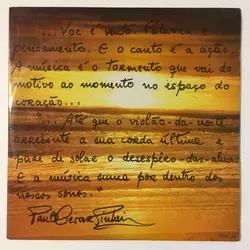 ... Voz é muito. Palavra é
pensamento. E o canto é a ação.
A música é o tormento que vai do
motivo ao momento no espaço do
coração...
... Até que o violão-da-noite
arrebente a sua corda última e
pare de solar o desespêro-das-almas
E a música suma por dentro dos
nossos sonos."
Paulo César Pinheiro